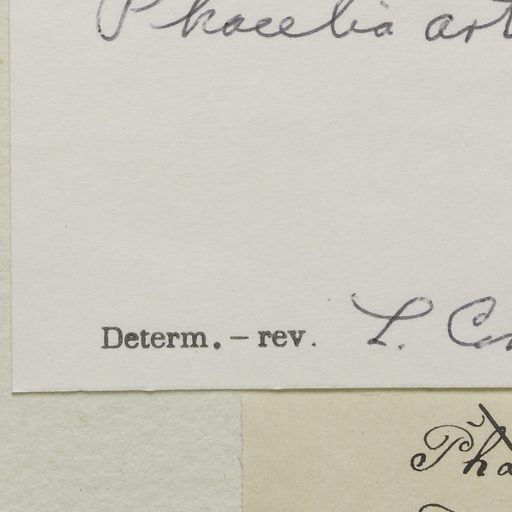 Phacelia art
Determ. – rev. L. Con
Pha